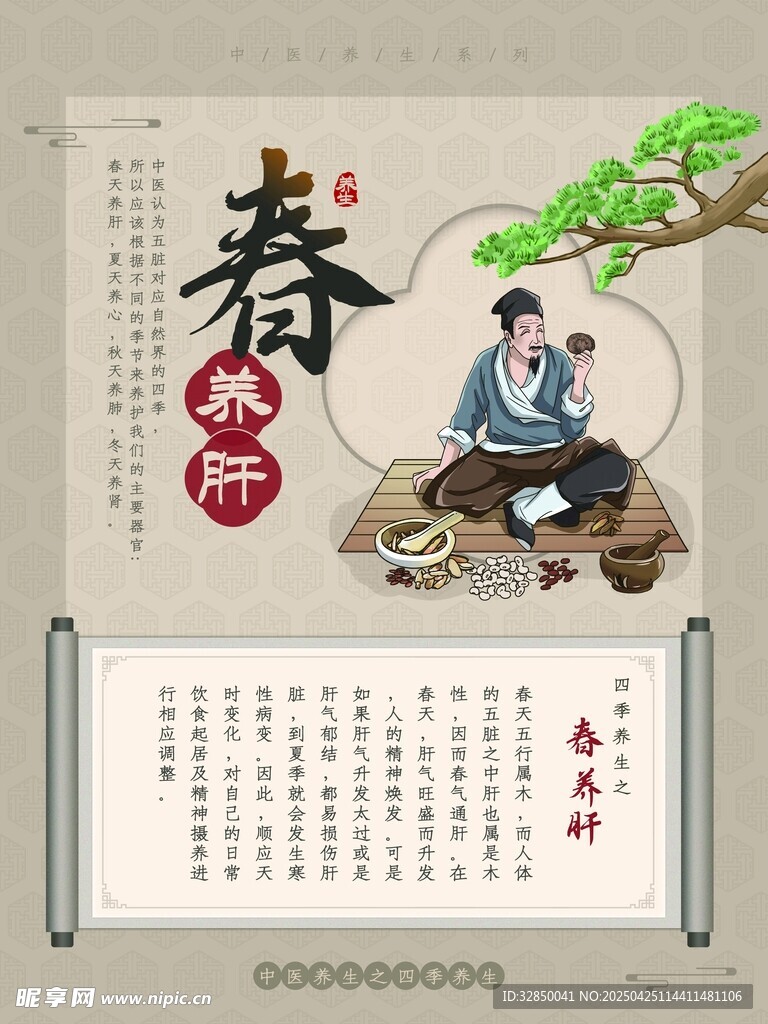 中/医/养/生/系/列
春
养生
养
肝
中医认为五脏对应自然界的四季，
所以应该根据不同的季节来养护我们的主要器官：
春天养肝，夏天养心，秋天养肺，冬天养肾。
四季养生之
春养肝
春天五行属木，而人体
的五脏之中肝也属是木
性，因而春气通肝。在
春天，肝气旺盛而升发
，人的精神焕发。可是
如果肝气升发太过或是
肝气郁结，都易损伤肝
脏，到夏季就会发生寒
性病变。因此，顺应天
时变化，对自己的日常
饮食起居及精神摄养进
行相应调整。
中医养生之四季养生
昵享网 www.nipic.cn
ID:32850041 NO:20250425114411481106